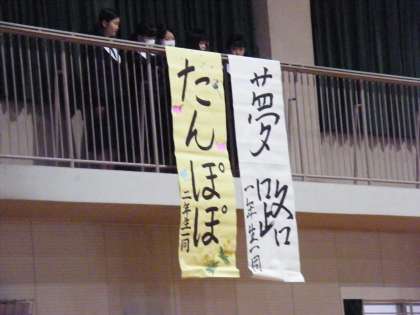 夢路
一年生一同
たんぽぽ
二年生一同